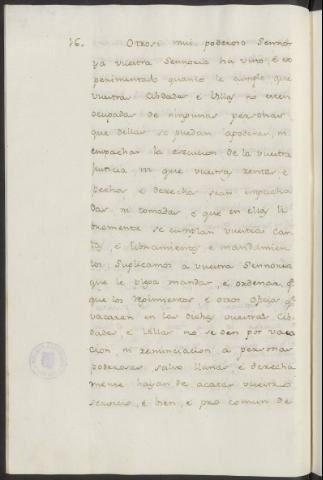 16. Otrosi mui poderoso Sennor
ya vuestra Sennoria ha visto, é ex
perimentado quanto le cumple que
vuestras Cibdades é Villas no esten
ocupadas de ningunas personas
que dellas se puedan apoderar, ni
empachar la execucion de la vuestra
justicia, ni que vuestras rentas é
pechos, é derechos sean empacha
dos ni tomados, é que en ellas li
bremente se cumplan vuestras Car
tas, é libramientos, é mandamien
tos. Suplicamos a vuestra Sennoria
que le plega mandar, é ordenar, q.e
que los regimientos, é otros oficios q.e
vacaren en las dichas vuestras Cib
dades é Villas no se den por vaca
cion, ni renunciacion a personas
poderosas salvo llanas, é derecha
mente hayan de acatar vuestro
servicio, é bien, é pro comun de